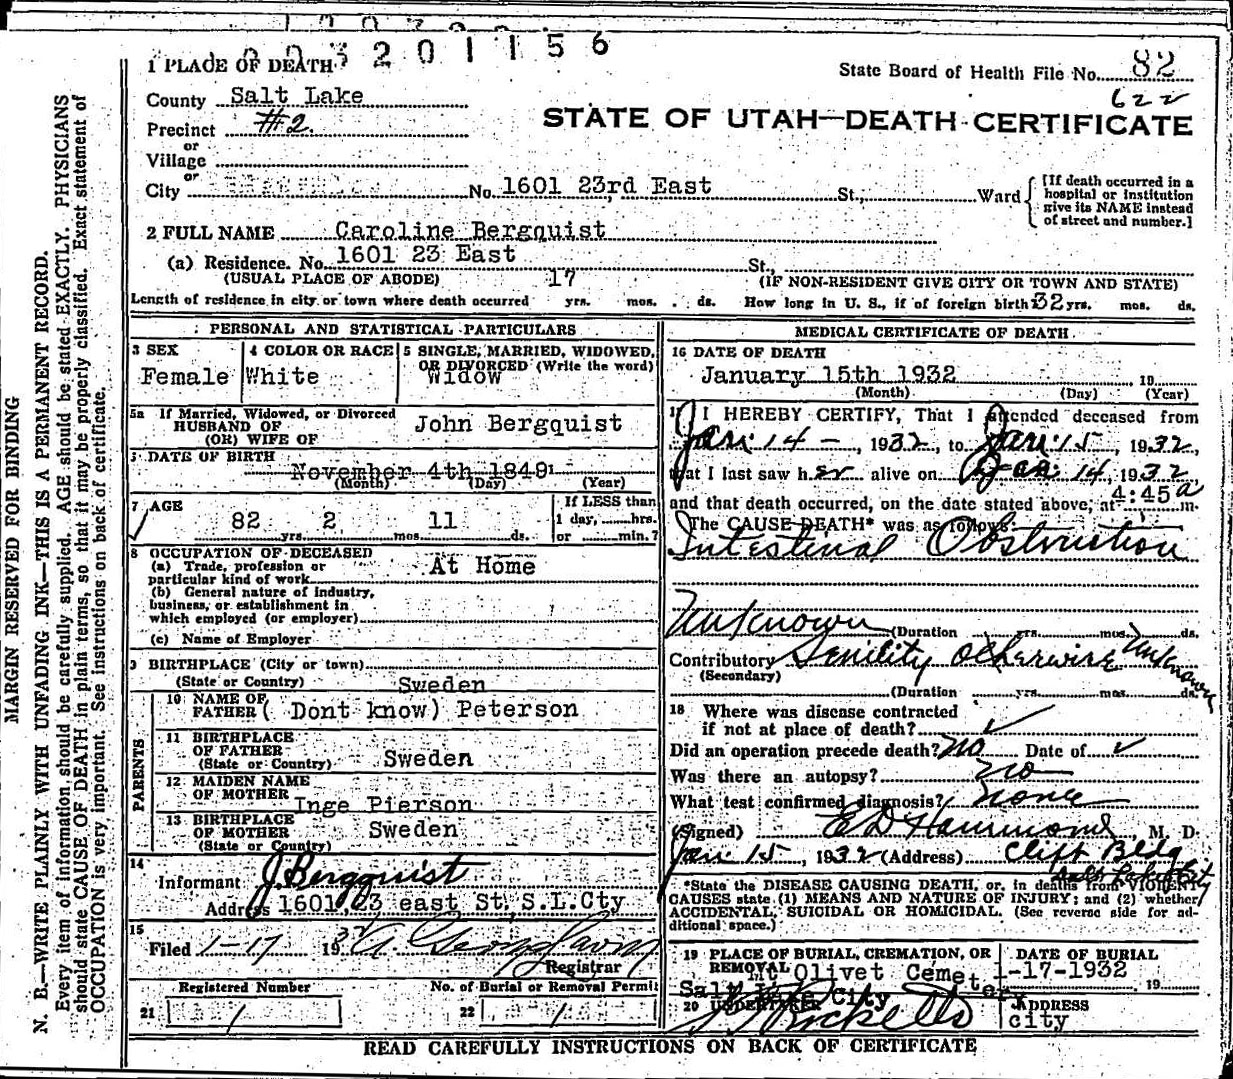 3201156
1 PLACE OF DEATH
State Board of Health File No. 82
622
County Salt Lake
STATE OF UTAH—DEATH CERTIFICATE
Precinct #2.
or
Village
or
City No. 1601 23rd East St., Ward [If death occurred in a hospital or institution give its NAME instead of street and number.]
2 FULL NAME Caroline Bergquist
(a) Residence. No. 1601 23 East St.,
(USUAL PLACE OF ABODE) 17 (IF NON-RESIDENT GIVE CITY OR TOWN AND STATE)
Length of residence in city or town where death occurred yrs. mos. ds. How long in U. S., if of foreign birth 32 yrs. mos. ds.
PERSONAL AND STATISTICAL PARTICULARS
3 SEX
Female
4 COLOR OR RACE
White
5 SINGLE, MARRIED, WIDOWED,
OR DIVORCED (Write the word)
Widow
5a If Married, Widowed, or Divorced
HUSBAND OF
(OR) WIFE OF
John Bergquist
DATE OF BIRTH
November 4th 1849
(Month) (Day) (Year)
7 AGE
82 yrs. 2 mos. 11 ds.
If LESS than
1 day, hrs.
or min.?
8 OCCUPATION OF DECEASED
(a) Trade, profession or
particular kind of work At Home
(b) General nature of industry,
business, or establishment in
which employed (or employer)
(c) Name of Employer
9 BIRTHPLACE (City or town)
(State or Country) Sweden
PARENTS
10 NAME OF
FATHER ( Dont know) Peterson
11 BIRTHPLACE
OF FATHER
(State or Country) Sweden
12 MAIDEN NAME
OF MOTHER Inge Pierson
13 BIRTHPLACE
OF MOTHER
(State or Country) Sweden
14
Informant J. Bergquist
Address 1601 23 east St, S.L.Cty
15
Filed 1-17 1932
Registrar
Registered Number
21 1
No. of Burial or Removal Permit
22 1
MEDICAL CERTIFICATE OF DEATH
16 DATE OF DEATH
January 15th 1932 19
(Month) (Day) (Year)
I HEREBY CERTIFY, That I attended deceased from
Jan. 14 —, 1932, to Jan. 15, 1932,
that I last saw her alive on Jan. 14, 1932
and that death occurred, on the date stated above, at 4:45 a m.
The CAUSE DEATH* was as follows:
Intestinal Obstruction
Unknown (Duration yrs. mos. ds.
Contributory Senility otherwise Unknown
(Secondary)
(Duration yrs. mos. ds.
18 Where was disease contracted
if not at place of death? ✓
Did an operation precede death? No Date of ✓
Was there an autopsy? no
What test confirmed diagnosis? none
(Signed) E D Hammond, M. D.
Jan 15, 1932 (Address) Clift Bldg
Salt Lake City
*State the DISEASE CAUSING DEATH, or, in deaths from VIOLENT
CAUSES state (1) MEANS AND NATURE OF INJURY; and (2) whether
ACCIDENTAL, SUICIDAL OR HOMICIDAL. (See reverse side for ad-
ditional space.)
19 PLACE OF BURIAL, CREMATION, OR
REMOVAL
Mt Olivet Cemetery
Salt Lake City
DATE OF BURIAL
1-17-1932 19
20 UNDERTAKER
ADDRESS
city
READ CAREFULLY INSTRUCTIONS ON BACK OF CERTIFICATE
MARGIN RESERVED FOR BINDING
N. B.—WRITE PLAINLY WITH UNFADING INK—THIS IS A PERMANENT RECORD.
Every item of information should be carefully supplied. AGE should be stated EXACTLY. PHYSICIANS
should state CAUSE OF DEATH in plain terms, so that it may be properly classified. Exact statement of
OCCUPATION is very important. See instructions on back of certificate.